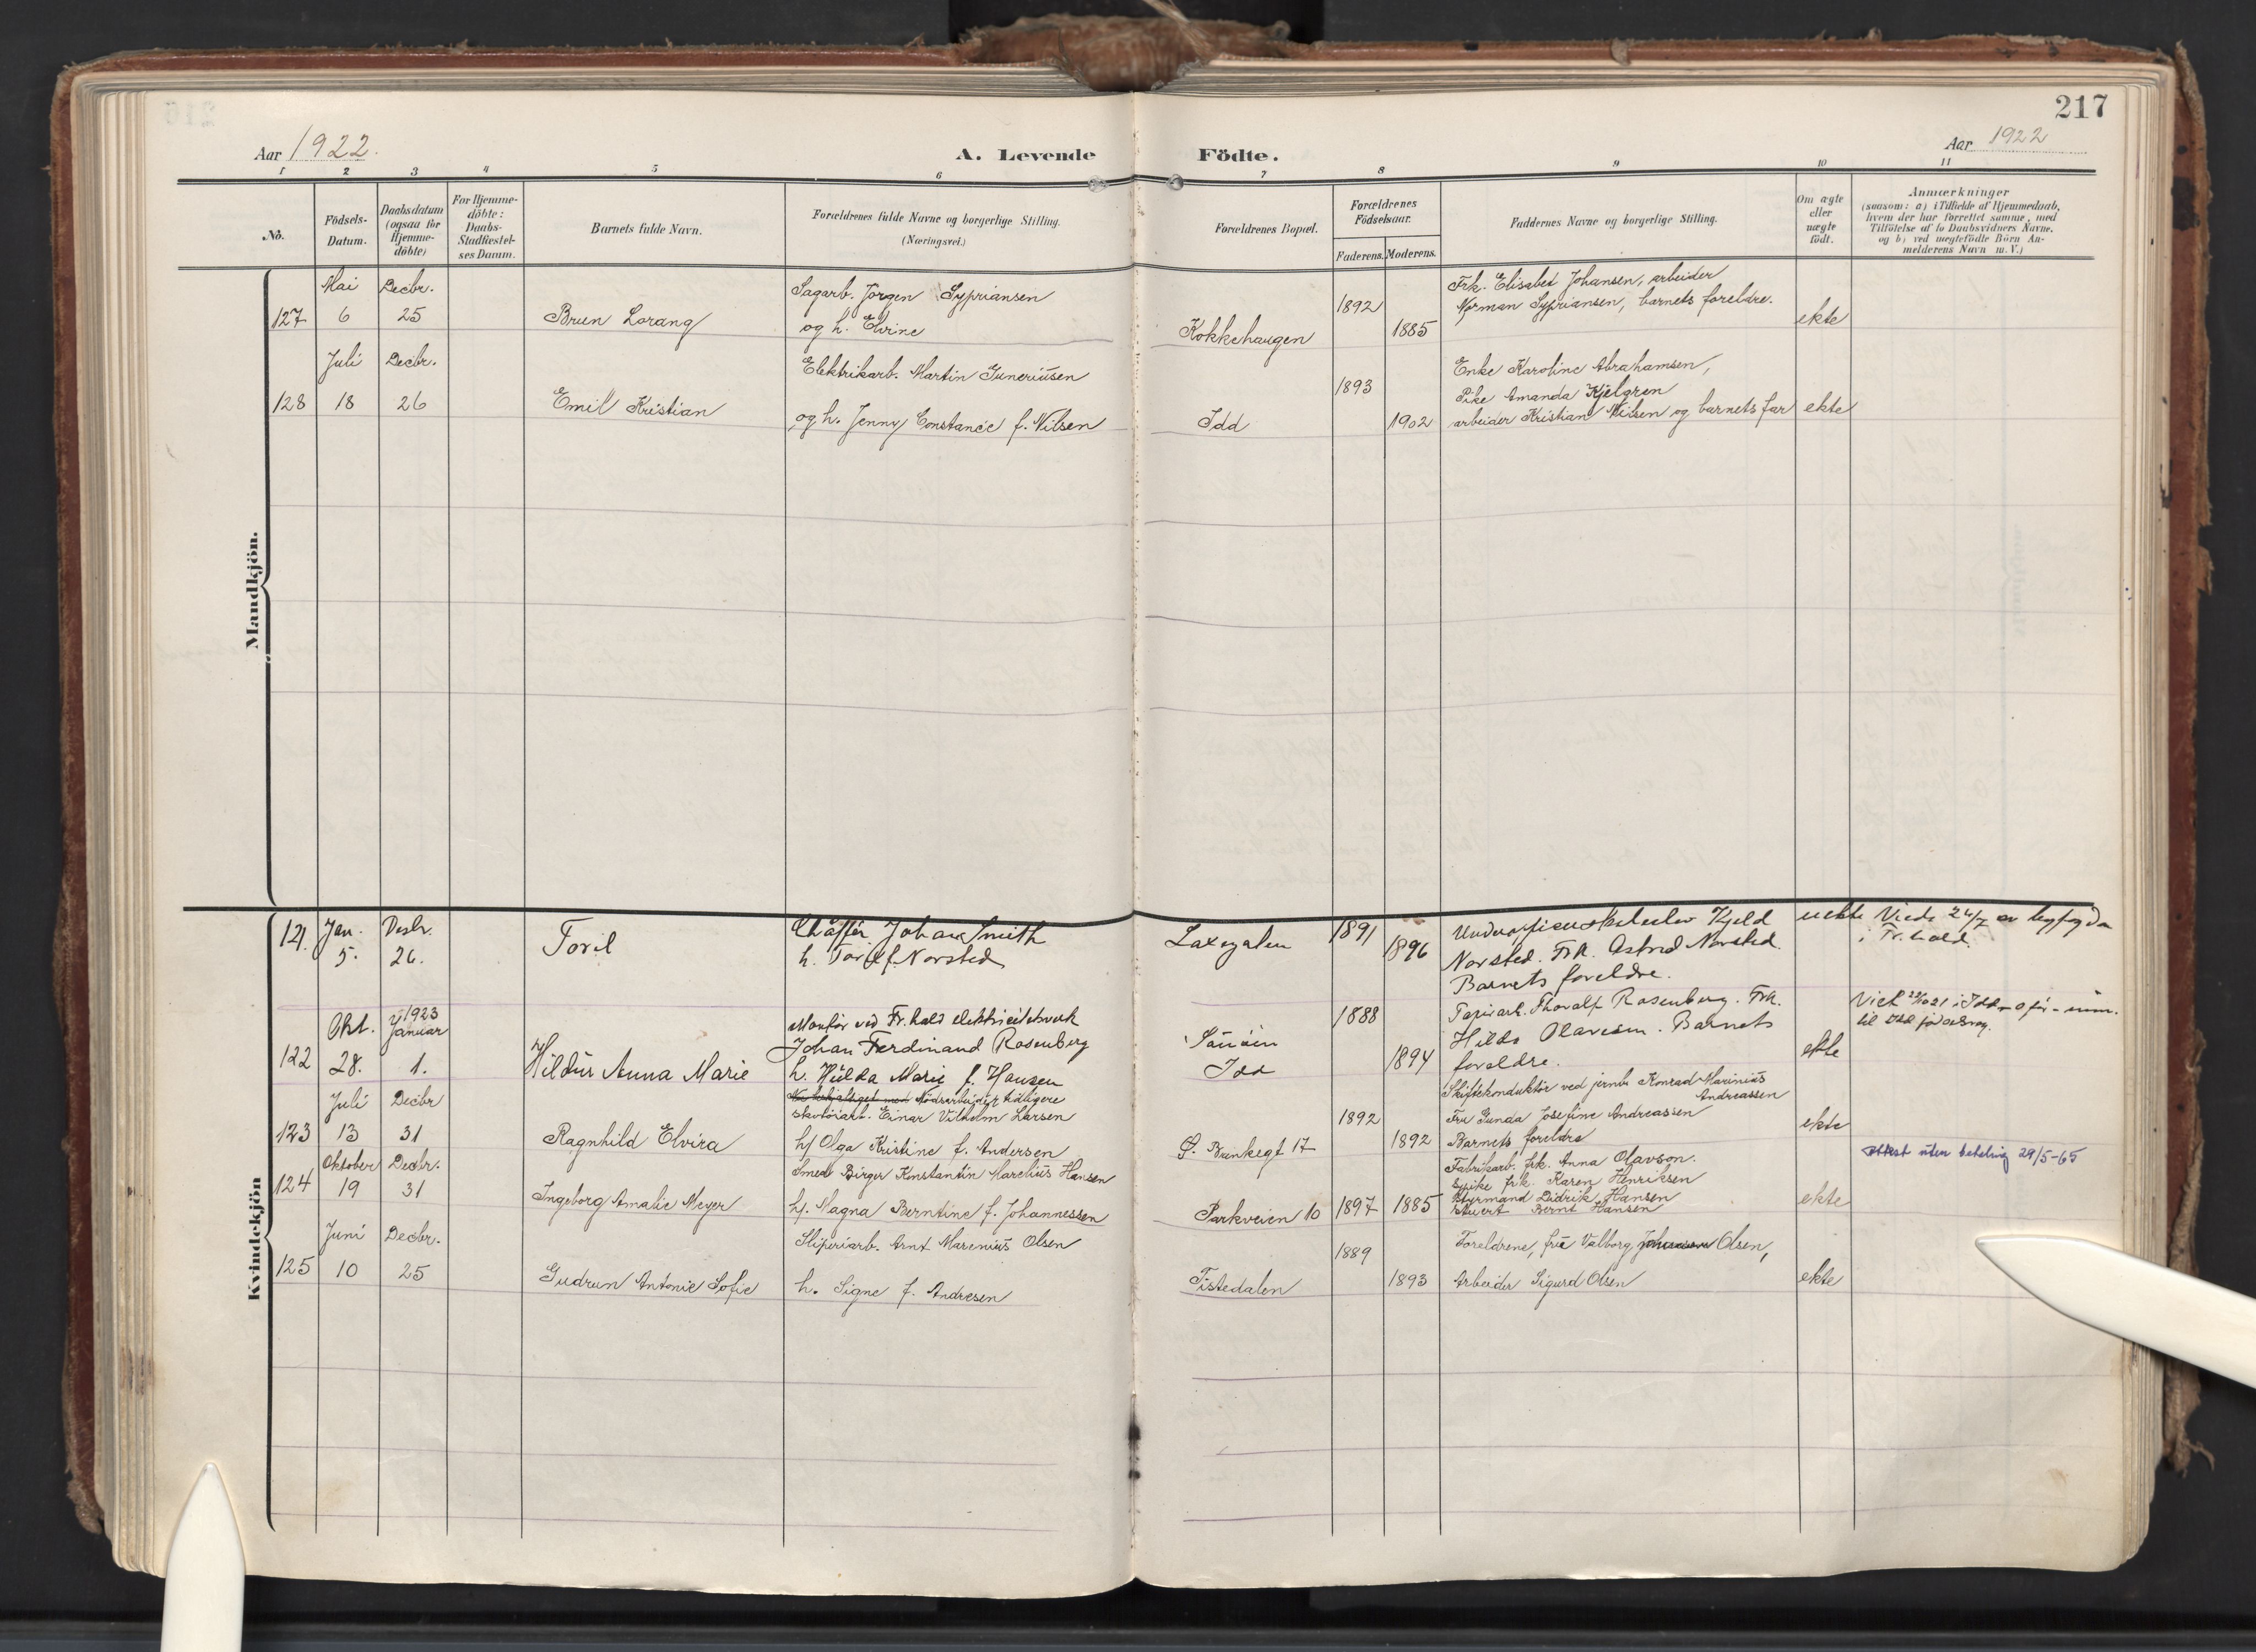 217
Aar 1922.
A. Levende Födte.
Aar 1922
1 2 3 4 5 6 7 8 9 10 11
No.
Födsels-Datum.
Daabsdatum (ogsaa for Hjemme-döbte)
For Hjemme-döbte: Daabs-Stadfæstel-ses Datum.
Barnets fulde Navn.
Forældrenes fulde Navne og borgerlige Stilling.
(Næringsvei.)
Forældrenes Bopæl.
Forældrenes Födselsaar.
Faderens. Moderens.
Faddernes Navne og borgerlige Stilling.
Om ægte eller uægte födt.
Anmærkninger
(saasom: a) i Tilfælde af Hjemmedaab,
hvem der har forrettet samme, med
Tilföielse af to Daabsvidners Navne.
og b) ved uægtefödte Börn An-
melderens Navn m. V.)
Mandkjön.
Mai Decbr.
127 6 25
Brun Lorang
Sagarb. Jörgen Sypriansen
og h. Elvine
Kokkehaugen
1892
1885
Frk. Elisabet Johansen, arbeider
Norman Sypriansen, barnets foreldre.
ekte
Juli Decbr.
128 18 26
Emil Kristian
Elektrikarb. Martin Guneriusen
og h. Jenny Constance f. Nilsen
Idd
1893
1902
Enke Karoline Abrahamsen,
Pike Amanda Kjelgren
arbeider Kristian Nilsen og barnets far
ekte
Kvindekjön
121. Jan. Desbr.
5. 26.
Toril
Chafför Johan Smith
h. Tordf f. Norsted
Laxegaten
1891
1896
Underofficerskoleelev Kjeld
Norsted. Frk. Astrid Norsted.
Barnets foreldre.
uekte
Viede 24/7 av byfogden
i Fr.hald.
Okt. 1923 Januar
122 28. 1.
Hildur Anna Marie
Montör ved Fr.hald elektricitetsverk
Johan Ferdinand Rosenberg
h. Hilda Marie f. Hansen
Idd
1888
1894
Thoralf Rosenberg. Frk.
Hilda Olavesen. Barnets
foreldre.
ekte
Viet 22/10 21 i Idd
til Idd
Juli Decbr
123 13 31
Ragnhild Elvira
Nödsarbeider tidligere
skotöiarb. Einar Vilhelm Larsen
h/ Olga Kristine f. Andersen
P. Brunkegt 17
1892
1892
Skiftekonduktör ved jernb. Konrad Marinius
Andreassen
Fru Gunda Josefine Andreassen
Barnets foreldre
ekte
Oktober Decbr.
124 19 31
Ingeborg Amalie Meyer
Smed Birger Konstantin Marelius Hansen
h/. Magna Berntine f. Johannessen
Parkveien 10
1897 1885
Fabrikarb. frk. Anna Olavson.
Syike frk. Karen Henriksen
Styrmand Didrik Hansen
Stuert Bernt Hansen
ekte
attest uten betaling 29/5-65
Juni Decbr.
125 10 25
Gudrun Antonie Sofie
Sliperiarb. Arnt Marenius Olsen
h. Signe f. Andresen
Tistedalen
1889
1893
Foreldrene, frú Valborg Johansen Olsen,
Arbeider Sigurd Olsen
ekte